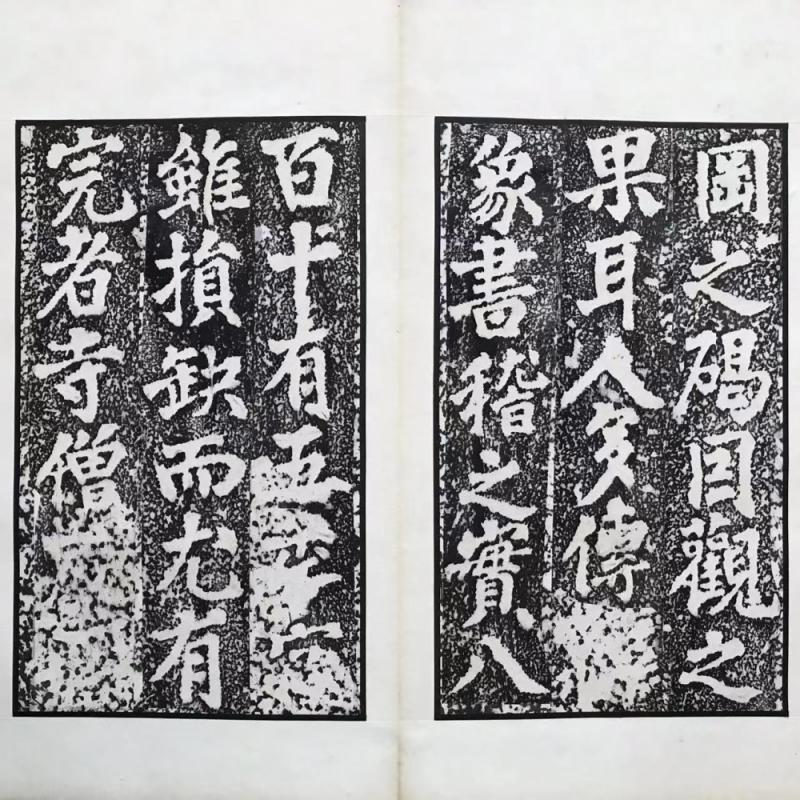 罔之碣因觀之
果耳人多傳
象書稽之實八
百十有五
雖損缺而尤有
完者寺僧